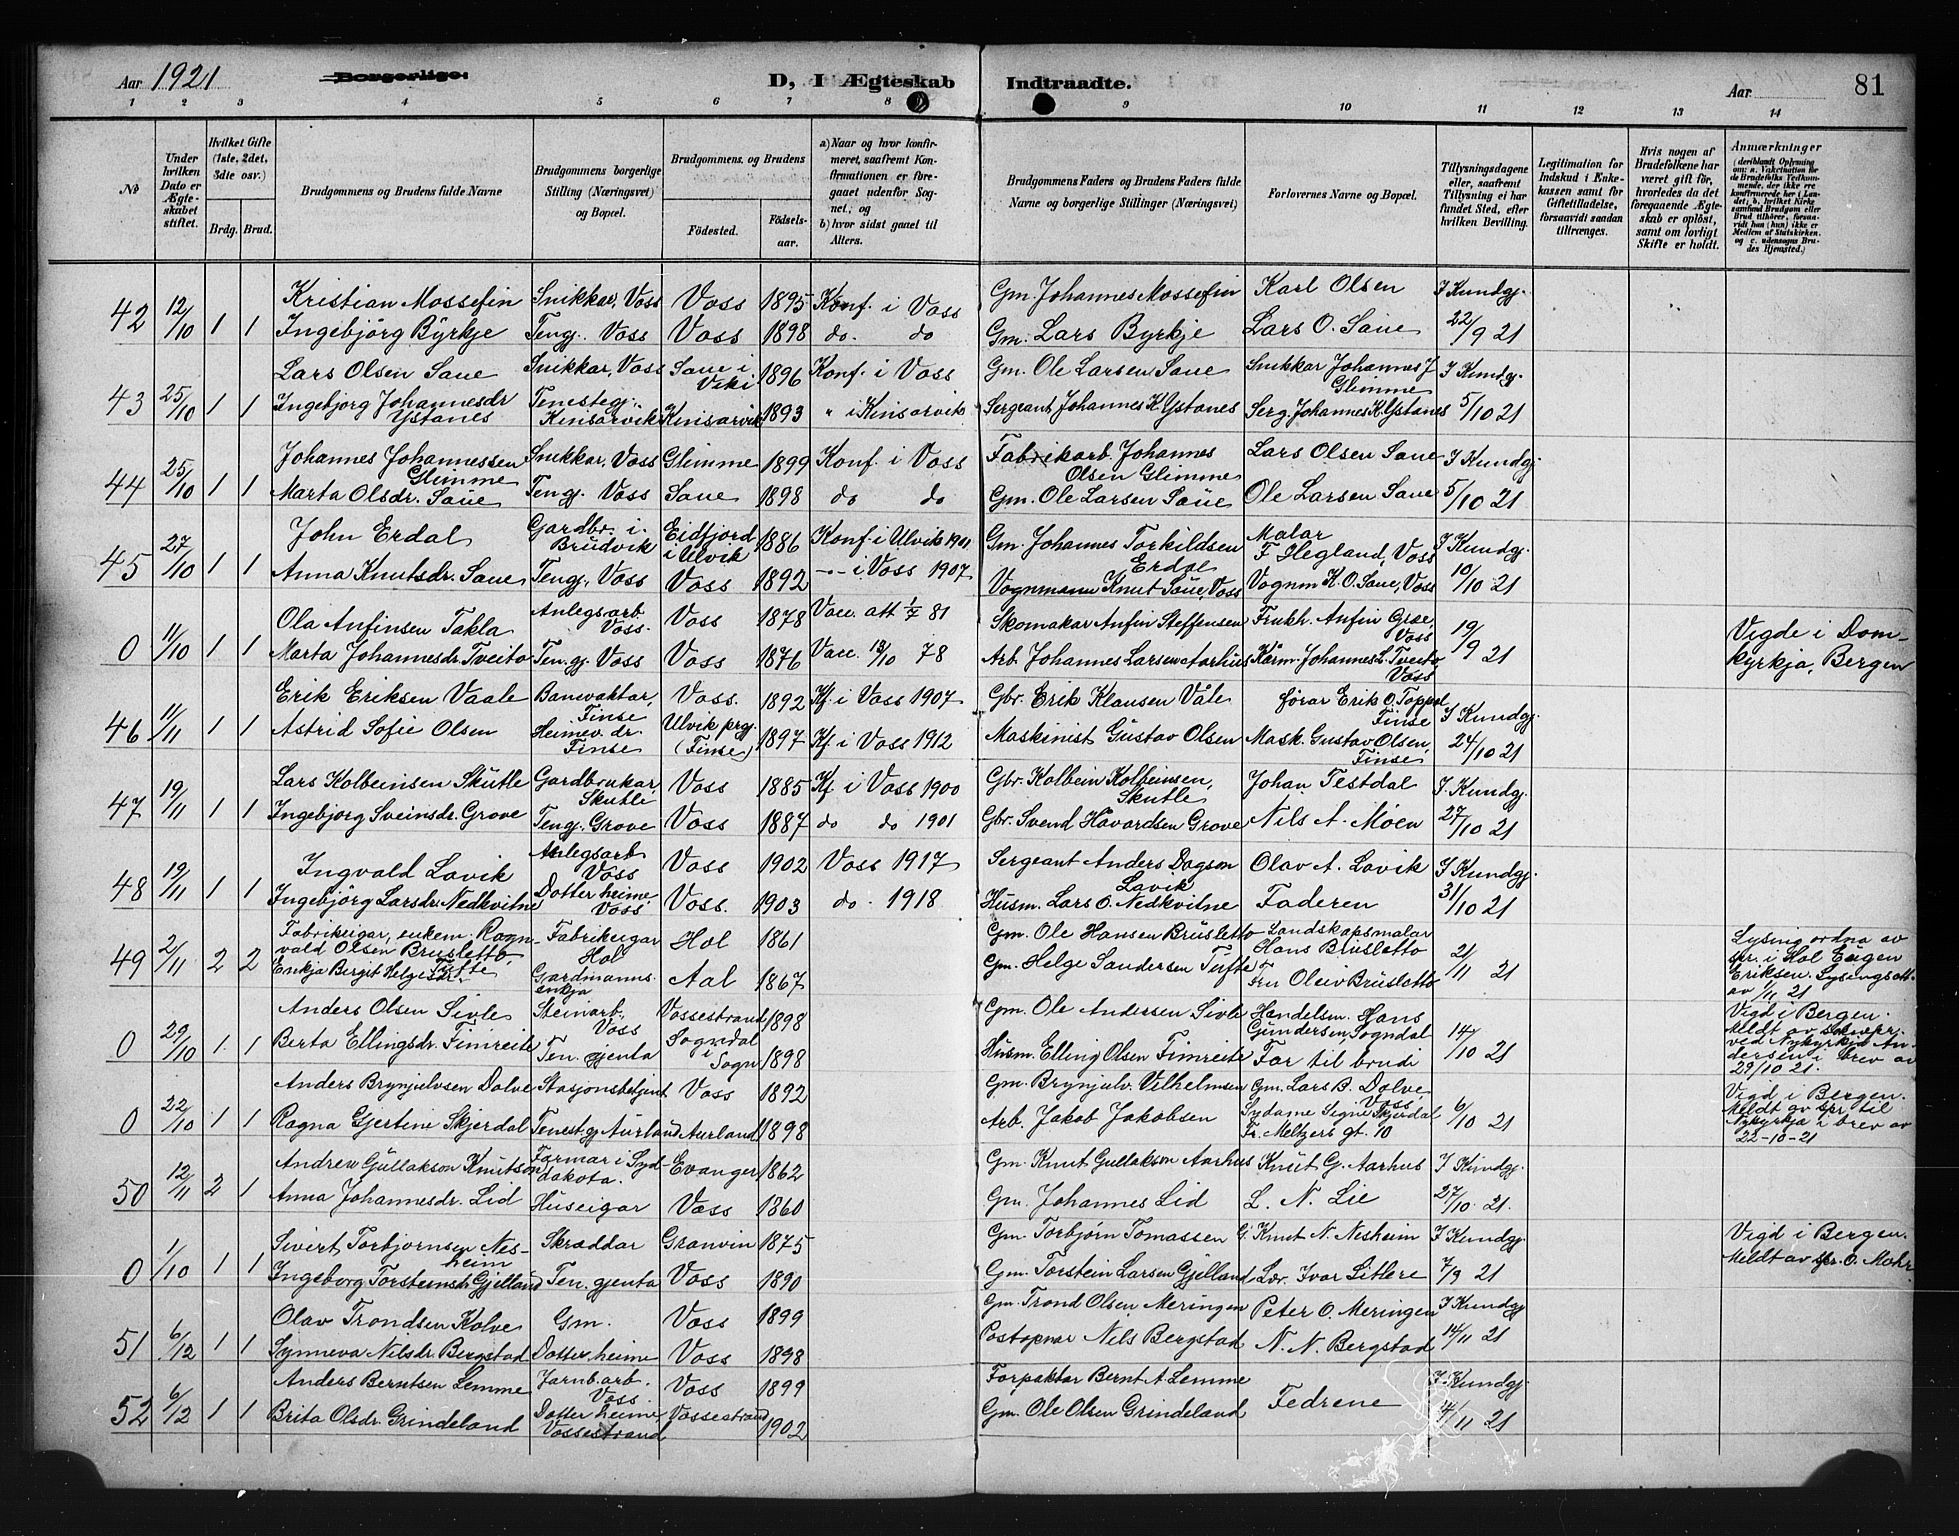 Aar 1921 Borgerlige: D, I Ægteskab Indtraadte. Aar 81
1 2 3 4 5 6 7 8 9 10 11 12 13 14
No
Under hvilken Dato er Ægteskabet stiftet.
Hvilket Gifte (1ste, 2det, 3die osv.)
Brdg. Brud.
Brudgommens og Brudens fulde Navne
Brudgommens borgerlige Stilling (Næringsvei) og Bopæl.
Brudgommens. og Brudens
Fødested. Fødselsaar.
a) Naar og hvor konfirmeret, saafremt Konfirmationen er foregaaet udenfor Sognet; og
b) hvor sidst gaaet til Alters.
Brudgommens Faders og Brudens Faders fulde Navne og borgerlige Stillinger (Næringsvei)
Forlovernes Navne og Bopæl.
Tillysningsdagene eller, saafremt Tillysning ei har fundet Sted, efter hvilken Bevilling.
Legitimation for Indskud i Enkekassen samt for Giftetilladelse, forsaavidt saadan tiltrænges.
Hvis nogen af Brudefolkene har været gift før, hvorledes da det foregaaende Ægteskab er opløst, samt om lovligt Skifte er holdt.
Anmærkninger
(deriblandt Oplysning om: a. Vakcination for de Brudefolks Vedkommende, der ikke ere konfirmerede her i Landet; b. hvilket Kirkesamfund Brudgom eller Brud tilhører, forsaavidt han (hun) ikke er Medlem af Statskirken. og c. udensogns Brudes Hjemsted.)
42 12/10 1 1 Kristian Mossefin Snikkar, Voss Voss 1895 Konf. i Voss Gm. Johannes Mossefin Karl Olsen I Kundgj.
Ingebjörg Byrkje Tengj. Voss Voss 1898 do. do Gm. Lars Byrkje Lars O. Saue 22/9 21
43 25/10 1 1 Lars Olsen Saue Snikkar, Voss Saue i Veki 1896 Konf. i Voss Gm. Ole Larsen Saue Snikkar Johannes J Glimme I Kundg.
Ingebjorg Johannesdr Ystanes Tenestegj. Kinsarvik Kinsarvik 1893 " i Kinsarvik Sergeant Johannes K. Ystanes Serg. Johannes K. Ystanes 5/10 21
44 25/10 1 1 Johannes Johannessen Glimme Snikkar, Voss Glimme 1899 Konf. i Voss Fabrikarb. Johannes Olsen Glimme Lars Olsen Saue I Kundgj
Marta Olsdr. Saue Tengj. Voss Saue 1898 do do Gm. Ole Larsen Saue Ole Larsen Saue 5/10 21
45 27/10 1 1 John Erdal Gardbr. i Brudvik Eidfjord i Ulvik 1886 Konf. i Ulvik 1901 Gm Johannes Torkildsen Erdal Malar F. Ilegland, Voss I Kundgj.
Anna Knutsdr. Saue Tengj., Voss Voss 1892 -"- i Voss 1907 Vognmann Knut Saue, Voss Vognm K. O. Saue, Voss 10/10 21
0 11/10 1 1 Ola Anfinsen Takla Anlegsarb. Voss. Voss 1878 Vacc. att 1/7 81 Skomakar Anfin Steffensen Frukh. Anfin Græe, Voss 19/9 21 Vigde i Domkyrkja, Bergen
Marta Johannesdr. Tveito Ten.gj. Voss Voss 1876 Vacc. 13/10 78 Arb. Johannes Larsen Aarhus Kårm. Johannes L. Tveito, Voss
46 11/11 1 1 Erik Eriksen Vaale Banevaktar, Finse Voss. 1892 Kf. i Voss 1907 Gbr. Erik Klausen Våle förar Erik O. Toppel Finse I Kundgj.
Astrid Sofie Olsen Heimev. dr. Finse Ulvik prgj. (Finse) 1897 Kf. i Voss 1912 Maskinist Gustav Olsen Mask. Gustav Olsen, Finse 24/10 21
47 19/11 1 1 Lars Kolbeinsen Skutle Gardbrukar, Skutle Voss 1885 Kf. i Voss 1900 Gbr. Kolbein Kolbeinsen, Skutle Johan Testdal I Kundgj.
Ingebjorg Sveinsdr. Grove Tengj. Grove Voss 1887 do do 1901 Gbr. Svend Håvardsen Grove Nils A. Møen 27/10 21
48 19/11 1 1 Ingvald Lavik Anlegsarb Voss Voss 1902 Voss 1917 Sergeant Anders Dagson Lavik Olav A. Lavik I Kundgj.
Ingebjörg Larsdr. Nedkvitne Dotter heime, Voss Voss. 1903 do. 1918 Husm. Lars O. Nedkvitne Faderen 31/10 21
49 2/11 2 2 Fabrikeigar, enkem. Ragnvald Olsen Brusletto, Fabrikeigar Hol Hol 1861 Gm. Ole Hansen Brusletto Landskapsmalar Hans Brusletto 21/11 21 Lysing ordna av spr. i Hol Eugen Eriksen. Lysingsatt. av 1/11 21
Enkja Bergit Helgesdr. Tufte Gardmanns enkja Aal 1867 Gm. Helge Sandersen Tufte Fru Oleiv Brusletto
0 29/10 1 1 Anders Olsen Sivle Steinarb., Voss Vossestrand 1898 Gm. Ole Andersen Sivle Handelsm. Hans Gundersen, Sogndal 14/10 21 Vigd i Bergen. Meldt av sokнepr. ved Nykyrkja Andersen i brev av 29/10 21.
Berta Ellingsdr. Fimreite Ten. gjenta Sogndal i Sogn 1898 Husm. Elling Olsen Fimreite Far til brudi
0 22/10 1 1 Anders Brynjulvsen Dolve Stasjonsbetjent Voss 1892 Gm. Brynjulv. Vilhelmsen Gm. Lars B. Dolve, Voss 6/10 21 Vigd i Bergen. Meldt av spr til Nykyrkja i brev av 22-10-21
Ragna Gjertine Skjerdal Tenestgj Aurland Aurland 1898 Arb. Jakob Jakobsen Sydame Signe Skjerdal Fr. Meltzers gt. 10
50 12/11 2 1 Andrew Gullakson Knutson Farmar i Syddakota. Evanger 1862 Gm. Knut Gullakson Aarhus Knut G. Aarhus I Kundgj.
Anna Johannesdr. Lid Huseigar Voss 1860 Gm. Johannes Lid L. N. Lie 27/10 21.
0 1/10 1 1 Sivert Torbjornsen Nesheim Skræddar Granvin 1875 Gm Torbjørn Tomassen G. Knut N. Nesheim I Kundgj. Vigd i Bergen. Meldt av spr. O. Mohr
Ingeborg Torsteinsdr. Gjelland Ten. gjenta Voss 1890 Gm. Torstein Larsen Gjelland Lær. Ivar Litlere 7/9 21
51 6/12 1 1 Olav Trondsen Kolve Gm. Voss 1899 Gm. Trond Olsen Meringen Peter O. Meringen I Kundgj
Synneva Nilsdr. Bergstad Dotter heime Voss 1898 Postopnar Nils Bergstad N. N. Bergstad 14/11 21
52 6/12 1 1 Anders Berntsen Lemme Jarnb.arb. Voss Voss 1899 Forpaktar Bernt A. Lemme Fedrene I Kundgj.
Brita Olsdr. Grindeland Dotter heime Vossestrand Vossestrand 1902 Gm. Ole Olsen Grindeland 14/11 21